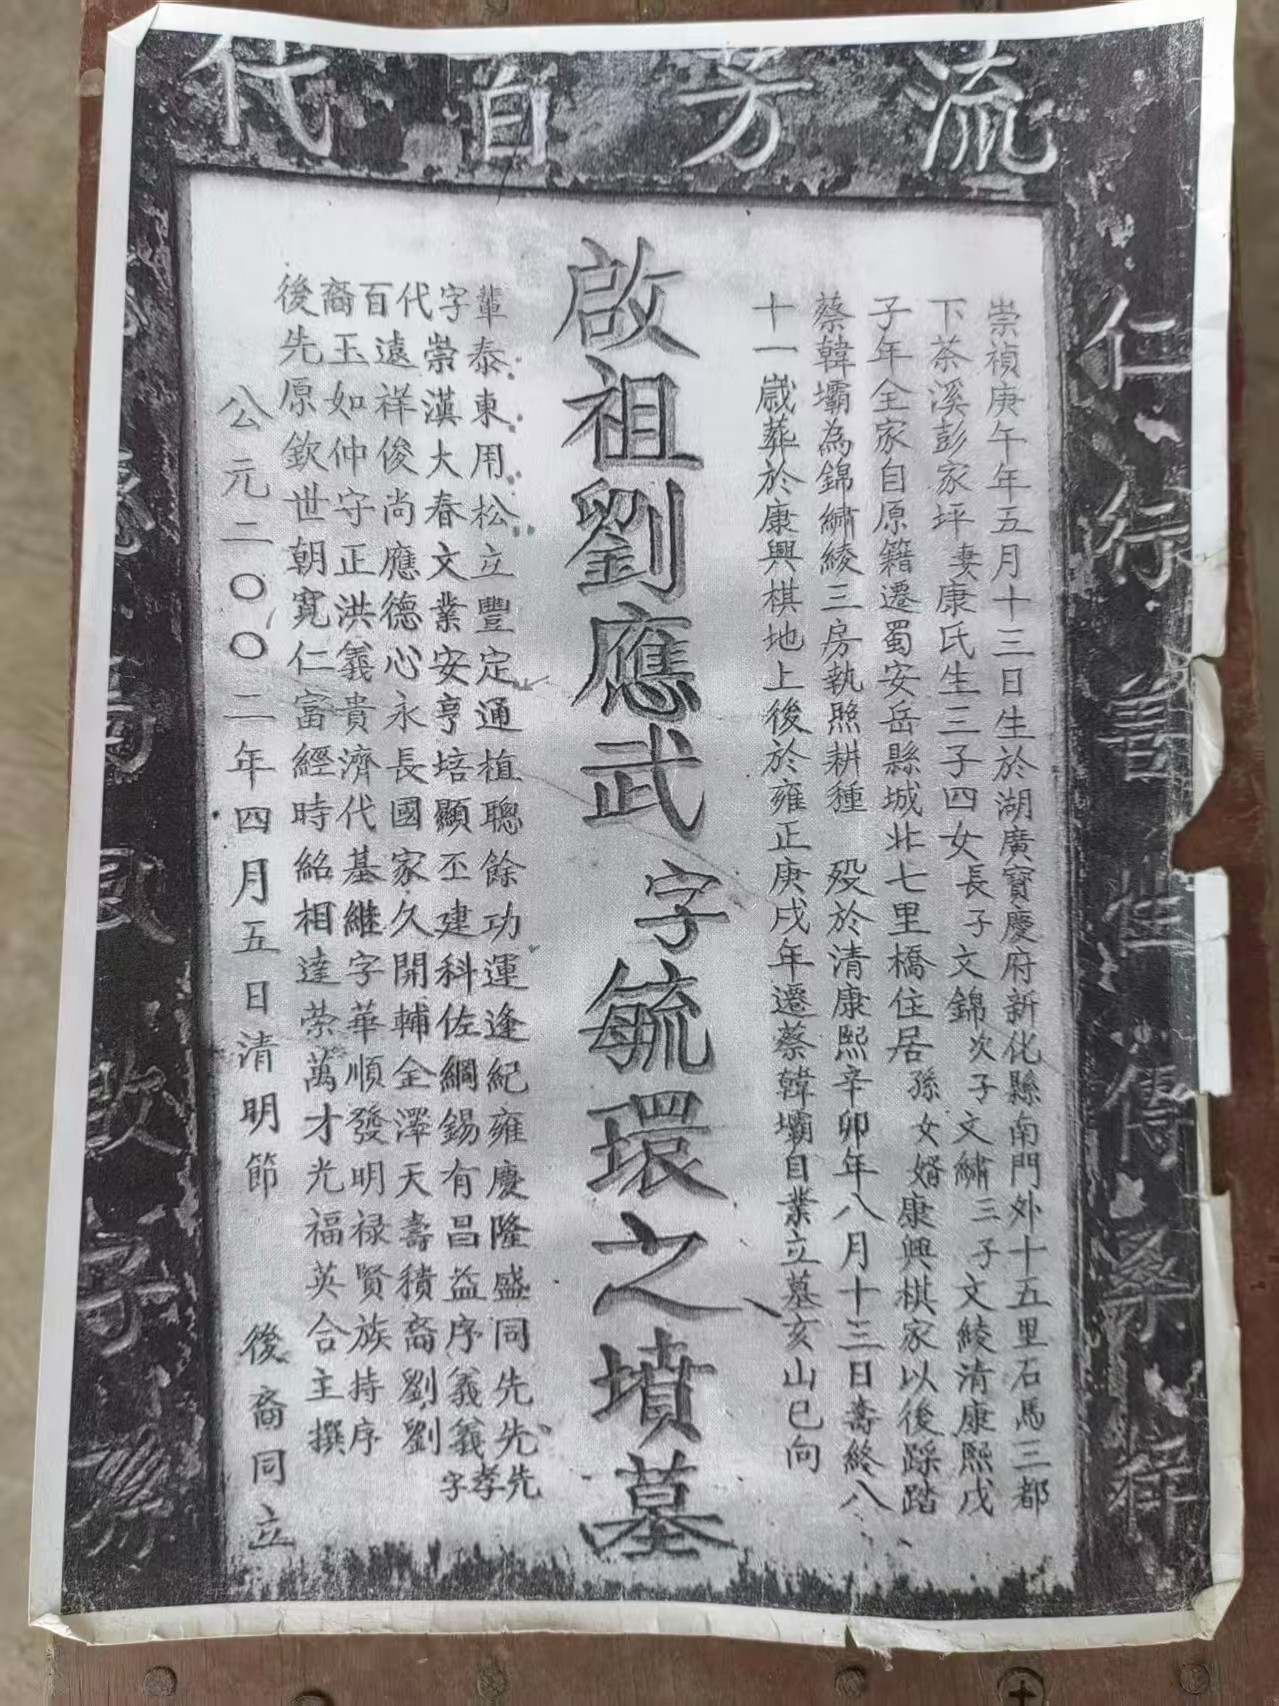 流芳百代
仁行善性傳桑梓
崇禎庚午年五月十三日生於湖廣寶慶府新化縣南門外十五里石馬三都
下茶溪彭家坪 妻康氏生三子四女長子文錦次子文繡三子文綾清康熙戊
子年全家自原籍遷蜀安岳縣城北七里橋住居孫女婿康興棋家以後踩踏
蔡韓壩為錦繡綾三房執照耕種 殁於清康熙辛卯年八月十三日壽終八
十一歲葬於康興棋地上後於雍正庚戌年遷蔡韓壩自業立墓亥山巳向
啟祖劉應武字毓環之墳墓
輩泰東用松立豐定通植聰餘功運逢紀雍慶隆盛同先先先
字崇漢大春文業安亨培顯丕建科佐綱錫有昌益序義義孝字
代百遠祥俊尚應德心永長國家久開輔全澤天壽積裔劉劉
裔玉如仲守正洪義貴濟代基維字華順發明禄賢族持序
後先原欽世朝寬仁富經時紹相達榮萬才光福英合主撰
公元二〇〇二年四月五日清明節 後裔同立
德高風啟子孫